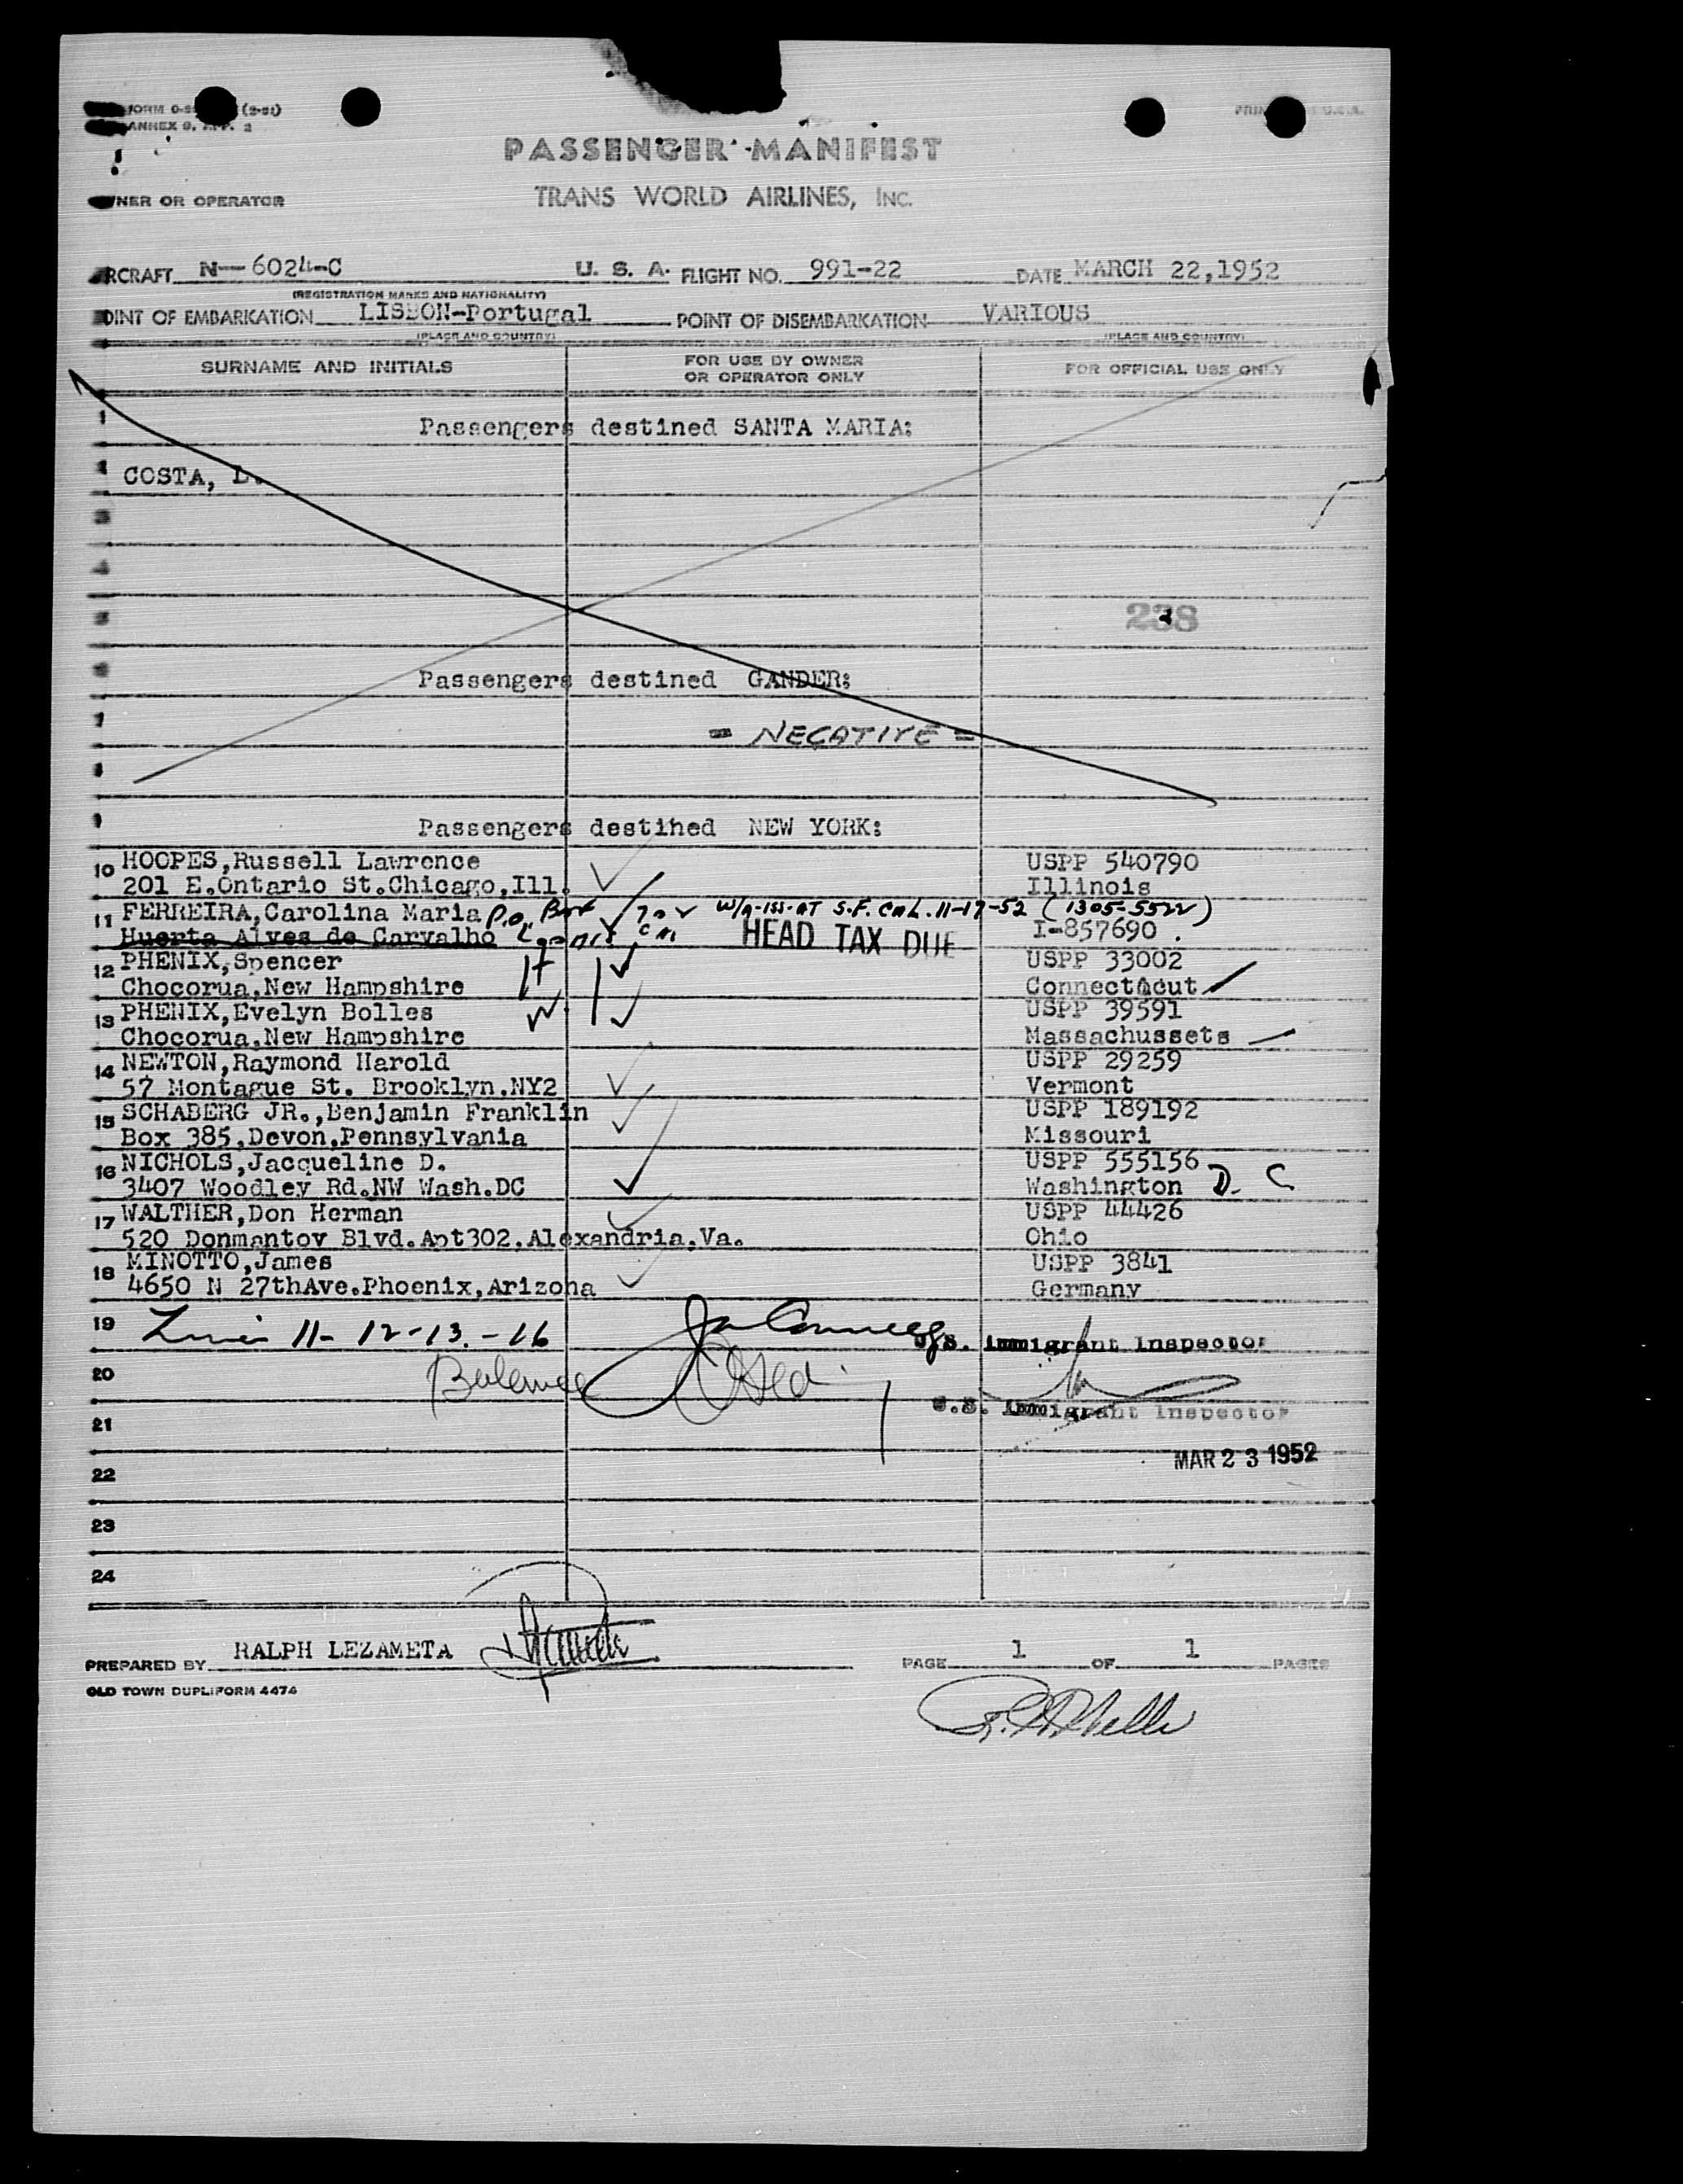 FORM (2-51)
ANNEX 9, APP. 2
PASSENGER MANIFEST
NER OR OPERATOR
TRANS WORLD AIRLINES, INC.
RCRAFT N-6024-C U. S. A. FLIGHT NO. 991-22 DATE MARCH 22,1952
(REGISTRATION MARKS AND NATIONALITY)
OINT OF EMBARKATION LISBON-Portugal POINT OF DISEMBARKATION VARIOUS
(PLACE AND COUNTRY) (PLACE AND COUNTRY)
SURNAME AND INITIALS FOR USE BY OWNER OR OPERATOR ONLY FOR OFFICIAL USE ONLY
1 Passengers destined SANTA MARIA:
COSTA,
3
4
5 238
6 Passengers destined GANDER:
7 = NEGATIVE =
8
9 Passengers destined NEW YORK:
10 HOOPES,Russell Lawrence USPP 540790
201 E.Ontario St.Chicago,Ill. Illinois
11 FERREIRA,Carolina Maria P.O. Box W/A-ISS-AT S.F. CAL. 11-17-52 (1305-5522)
Huerta Alves de Carvalho HEAD TAX DUE I-857690.
12 PHENIX,Spencer USPP 33002
Chocorua,New Hampshire Connectucut
13 PHENIX,Evelyn Bolles USPP 39591
Chocorua,New Hampshire Massachussets
14 NEWTON,Raymond Harold USPP 29259
57 Montague St. Brooklyn.NY2 Vermont
15 SCHABERG JR.,Benjamin Franklin USPP 189192
Box 385,Devon,Pennsylvania Missouri
16 NICHOLS,Jacqueline D. USPP 555156
3407 Woodley Rd.NW Wash.DC Washington D. C
17 WALTHER,Don Herman USPP 44426
520 Donmantov Blvd.Apt302,Alexandria,Va. Ohio
18 MINOTTO,James USPP 3841
4650 N 27thAve.Phoenix,Arizona Germany
19 11-12-13.-16 U.S. Immigrant Inspector
20 Balance
U.S. Immigrant Inspector
21
MAR 23 1952
22
23
24
PREPARED BY RALPH LEZAMETA PAGE 1 OF 1 PAGES
OLD TOWN DUPLIFORM 4474